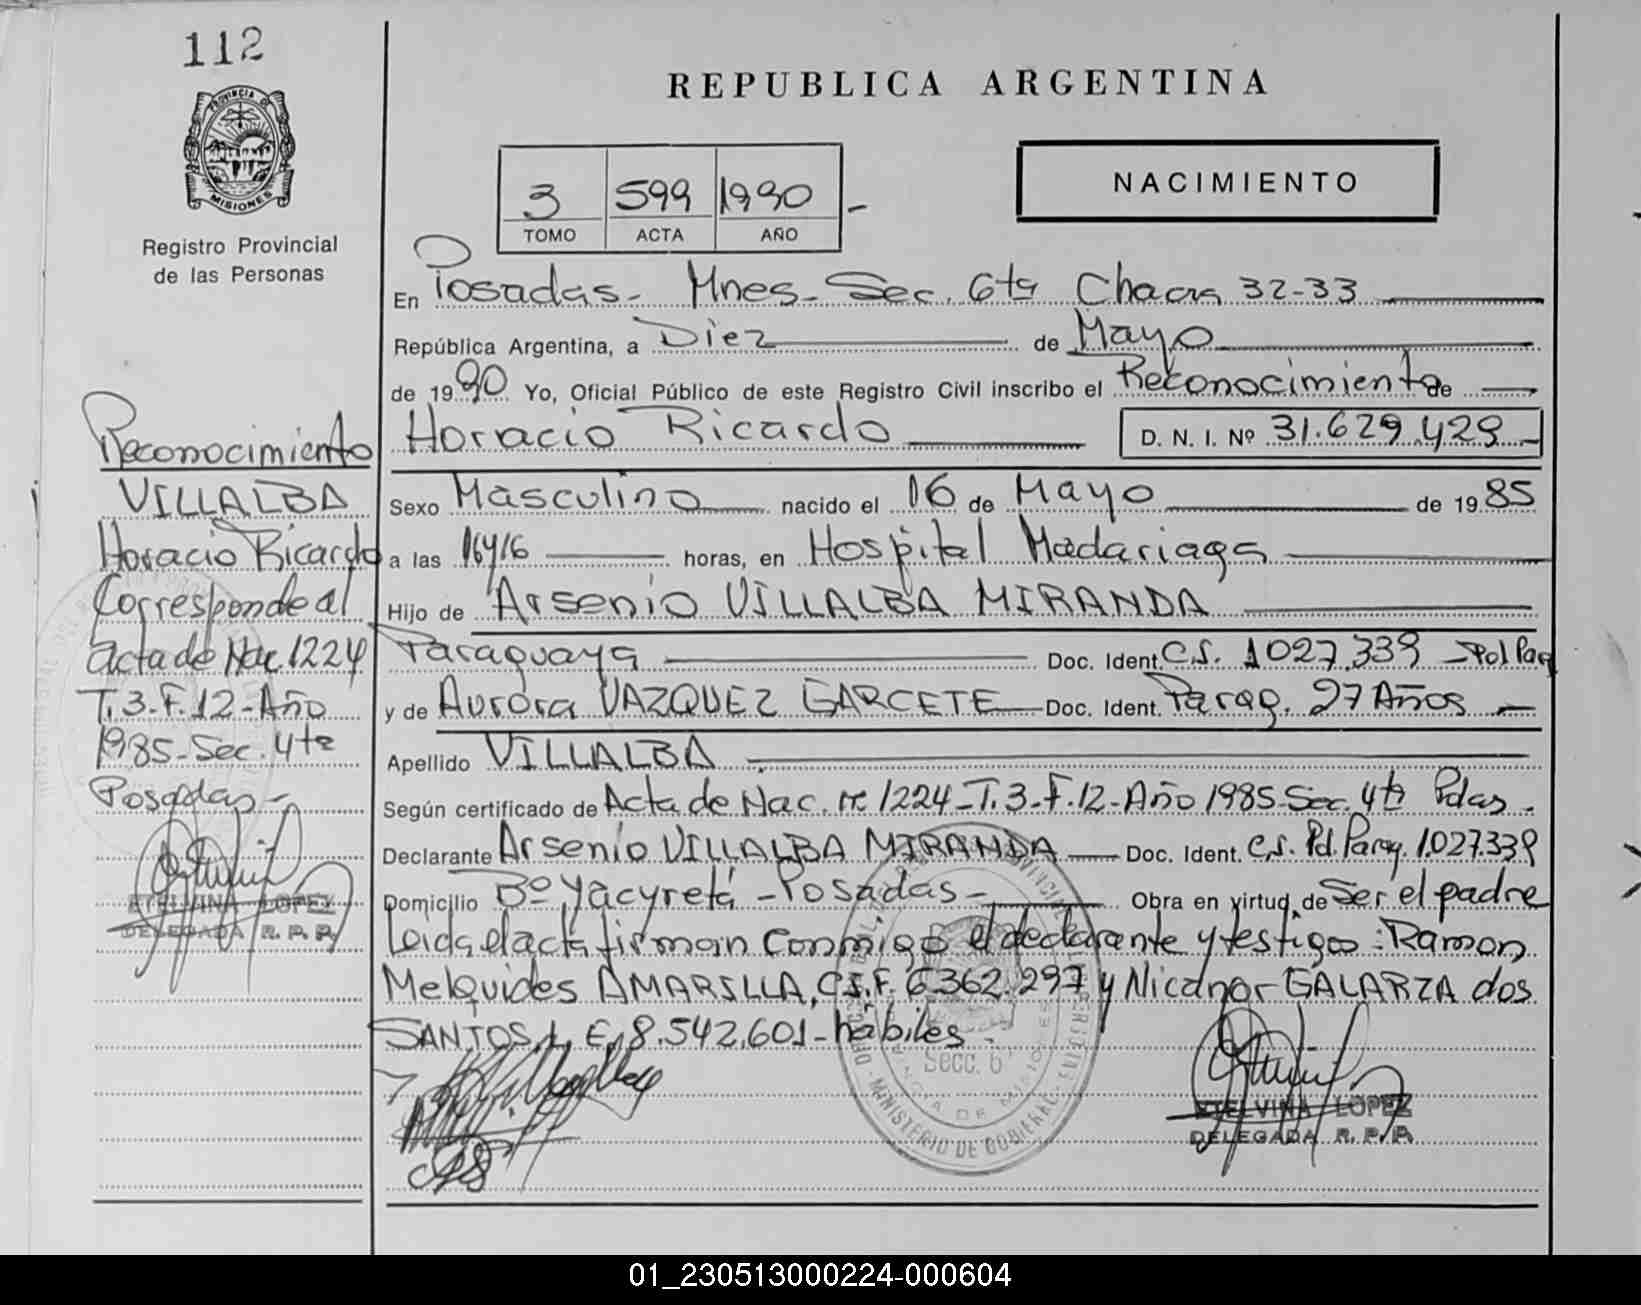 112
PROVINCIA DE
MISIONES
Registro Provincial
de las Personas
REPUBLICA ARGENTINA
3 599 1990 -
TOMO ACTA AÑO
NACIMIENTO
En Posadas - Mnes - Sec. 6ta Chacra 32-33
República Argentina, a Diez de Mayo
de 1990 Yo, Oficial Público de este Registro Civil inscribo el Reconocimiento de
Horacio Ricardo D. N. I. Nº 31.629.429 -
Sexo Masculino nacido el 16 de Mayo de 1985
a las 16y16 horas, en Hospital Madariaga
Hijo de Arsenio VILLALBA MIRANDA
Paraguaya Doc. Ident. C.I. 1027.339 - Pol Parag
y de Aurora VAZQUEZ GARCETE Doc. Ident. Parag. 27 Años
Apellido VILLALBA
Según certificado de Acta de Nac. nº 1224 - T. 3 - F. 12 - Año 1985 - Sec. 4ta Pdas.
Declarante Arsenio VILLALBA MIRANDA Doc. Ident. C.I. Pol. Parag. 1.027.339
Domicilio Bº Yacyretá - Posadas - Obra en virtud de Ser el padre
Leida el acta firman conmigo el declarante y testigos: Ramon
Melquides AMARILLA, C.I.F. 6362.297 y Nicanor GALARZA dos
SANTOS L.E. 8.542.601 - hábiles -
Secc. 6
MINISTERIO DE GOBIERNO
ETELVINA LOPEZ
DELEGADA R. P. P.
Reconocimiento
VILLALBA
Horacio Ricardo
Corresponde al
acta de Nac. 1224
T. 3 - F. 12 - Año
1985 - Sec. 4ta
Posadas -
ETELVINA LOPEZ
DELEGADA R. P. P.
01_230513000224-000604